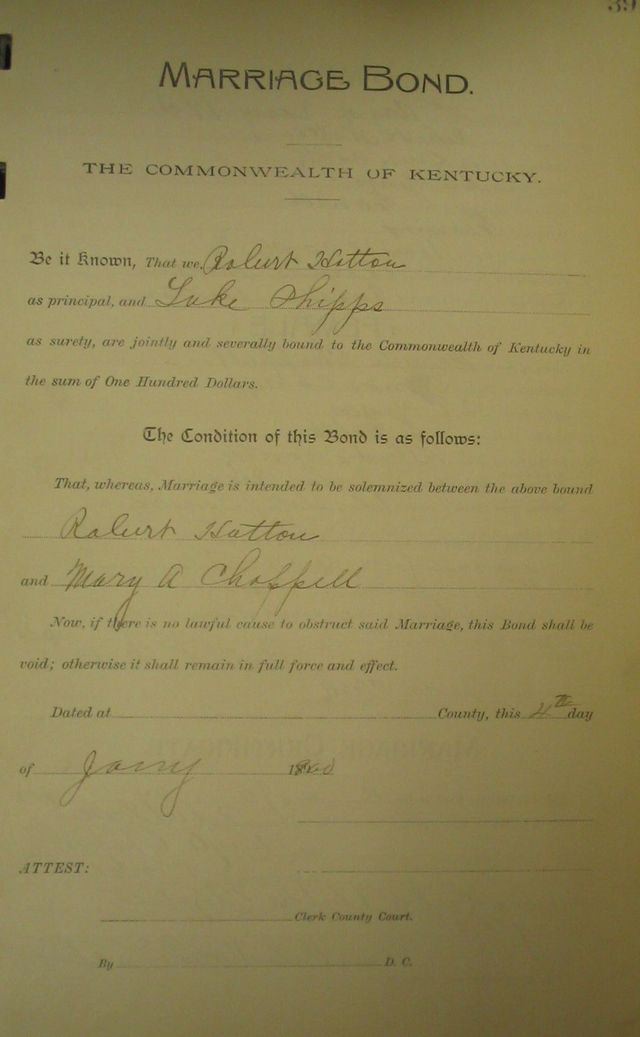 39
MARRIAGE BOND.
THE COMMONWEALTH OF KENTUCKY.
Be it Known, That we, Robert Hatton
as principal, and Luke Shipps
as surety, are jointly and severally bound to the Commonwealth of Kentucky in
the sum of One Hundred Dollars.
The Condition of this Bond is as follows:
That, whereas, Marriage is intended to be solemnized between the above bound
Robert Hatton
and Mary A Chappell
Now, if there is no lawful cause to obstruct said Marriage, this Bond shall be
void; otherwise it shall remain in full force and effect.
Dated at County, this 4th day
of Jany
ATTEST:
Clerk County Court.
By D. C.